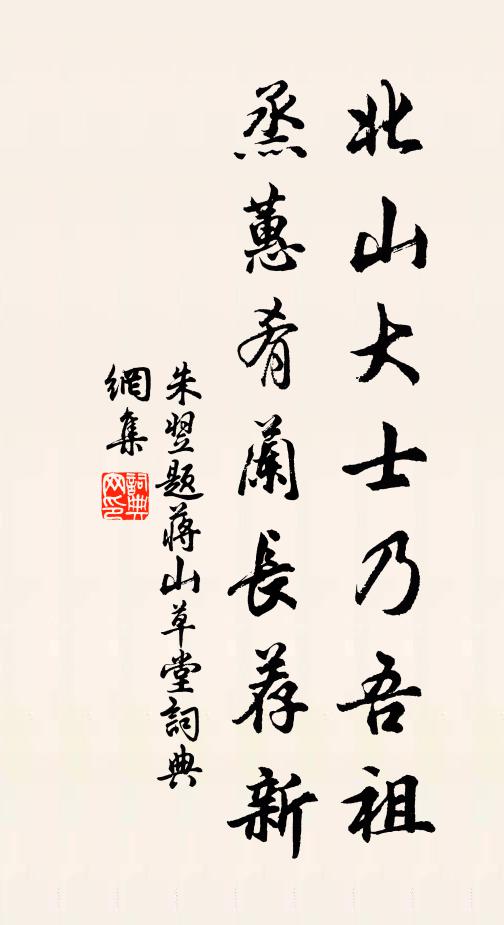 北山大士乃吾祖
烝蕙肴蘭長荐新
朱翌題蔣山草堂詞典
網集
詞典網印